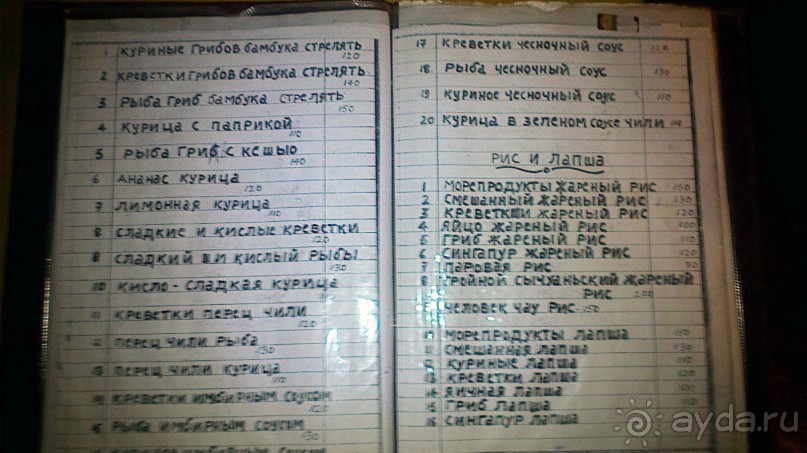 1 КУРИНЫЕ ГРИБОВ БАМБУКА СТРЕЛЯТЬ
120
2 КРЕВЕТКИ ГРИБОВ БАМБУКА СТРЕЛЯТЬ
140
3 РЫБА ГРИБ БАМБУКА СТРЕЛЯТЬ
150
4 КУРИЦА С ПАПРИКОЙ
110
5 РЫБА ГРИБ С КЕШЬЮ
140
6 АНАНАС КУРИЦА
120
7 ЛИМОННАЯ КУРИЦА
110
8 СЛАДКИЕ И КИСЛЫЕ КРЕВЕТКИ
120
9 СЛАДКИЙ И КИСЛЫЙ РЫБЫ
130
10 КИСЛО-СЛАДКАЯ КУРИЦА
11 КРЕВЕТКИ ПЕРЕЦ ЧИЛИ
120
12 ПЕРЕЦ ЧИЛИ РЫБА
130
13 ПЕРЕЦ ЧИЛИ КУРИЦА
110
14 КРЕВЕТКИ ИМБИРНЫМ СОУСОМ
120
15 РЫБА ИМБИРНЫМ СОУСОМ
130
9
17 КРЕВЕТКИ ЧЕСНОЧНЫЙ СОУС 120
18 РЫБА ЧЕСНОЧНЫЙ СОУС 130
19 КУРИНОЕ ЧЕСНОЧНЫЙ СОУС 110
20 КУРИЦА В ЗЕЛЕНОМ СОУСЕ ЧИЛИ 110
РИС И ЛАПША
1 МОРЕПРОДУКТЫ ЖАРЕНЫЙ РИС 150
2 СМЕШАННЫЙ ЖАРЕНЫЙ РИС 130
3 КРЕВЕТКИ ЖАРЕНЫЙ РИС 120
4 ЯЙЦО ЖАРЕНЫЙ РИС 100
5 ГРИБ ЖАРЕНЫЙ РИС 110
6 СИНГАПУР ЖАРЕНЫЙ РИС 120
7 ПАРОВАЯ РИС
8 ТРОЙНОЙ СЫЧУАНЬСКИЙ ЖАРЕНЫЙ
РИС 200
ЧЕЛОВЕК ЧАУ РИС 150
МОРЕПРОДУКТЫ ЛАПША 150
11 СМЕШАННАЯ ЛАПША 130
12 КУРИНЫЕ ЛАПША 110
13 КРЕВЕТКИ ЛАПША 120
14 ЯИЧНАЯ ЛАПША 100
15 ГРИБ ЛАПША 110
16 СИНГАПУР ЛАПША
ayda.ru